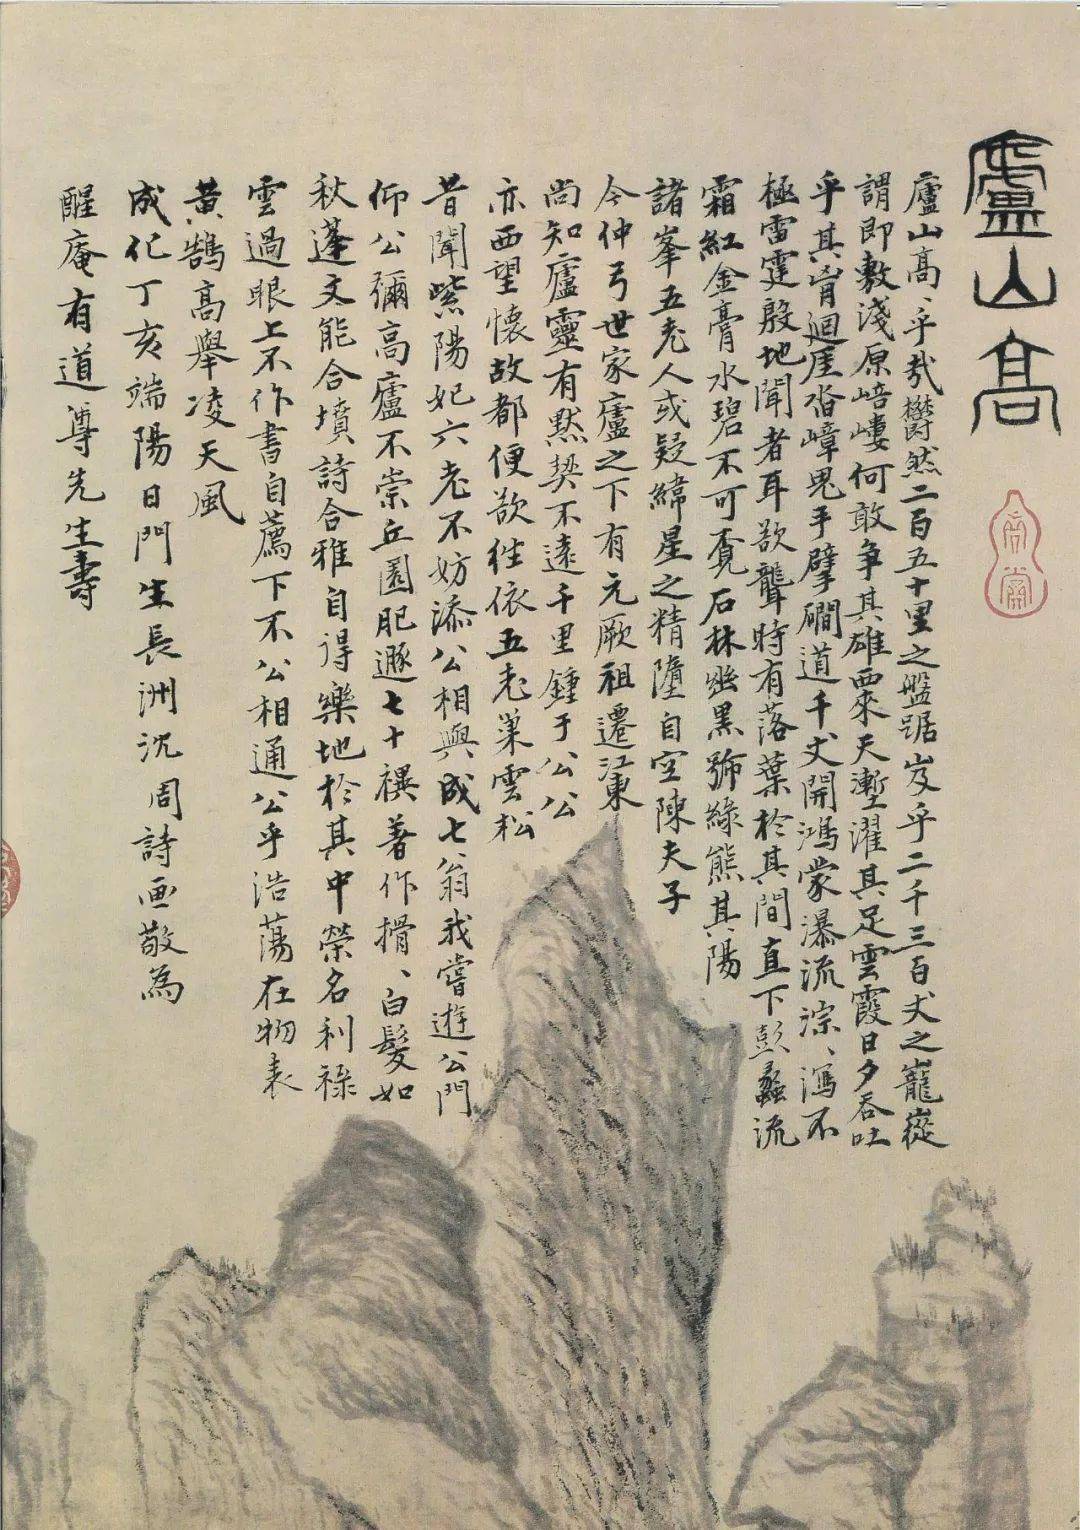 廬山高
廬山高、乎哉欝然二百五十里之盤踞岌乎二千三百丈之巃嵸
謂即敷淺原嵓嶁何敢爭其雄西來天塹濯其足雲霞日夕吞吐
乎其胷迴厓沓嶂鬼手擘磵道千丈開鴻蒙瀑流淙、瀉不
極雷霆殷地聞者耳欲聾時有落葉於其間直下彭蠡流
霜紅金膏水碧不可覔石林幽黑號綠熊其陽
諸峯五老人或疑緯星之精墮自空陳夫子
今仲弓世家廬之下有元厥祖遷江東
尚知廬靈有默契不遠千里鍾于公公
亦西望懷故都便欲往依五老巢雲松
昔聞紫陽妃六老不妨添公相與成七翁我嘗遊公門
仰公彌高廬不崇丘園肥遯七十禩著作搰、白髮如
秋蓬文能合墳詩合雅自得樂地於其中榮名利祿
雲過眼上不作書自薦下不公相通公乎浩蕩在物表
黃鵠高舉凌天風
成化丁亥端陽日門生長洲沈周詩画敬為
醒庵有道尊先生壽